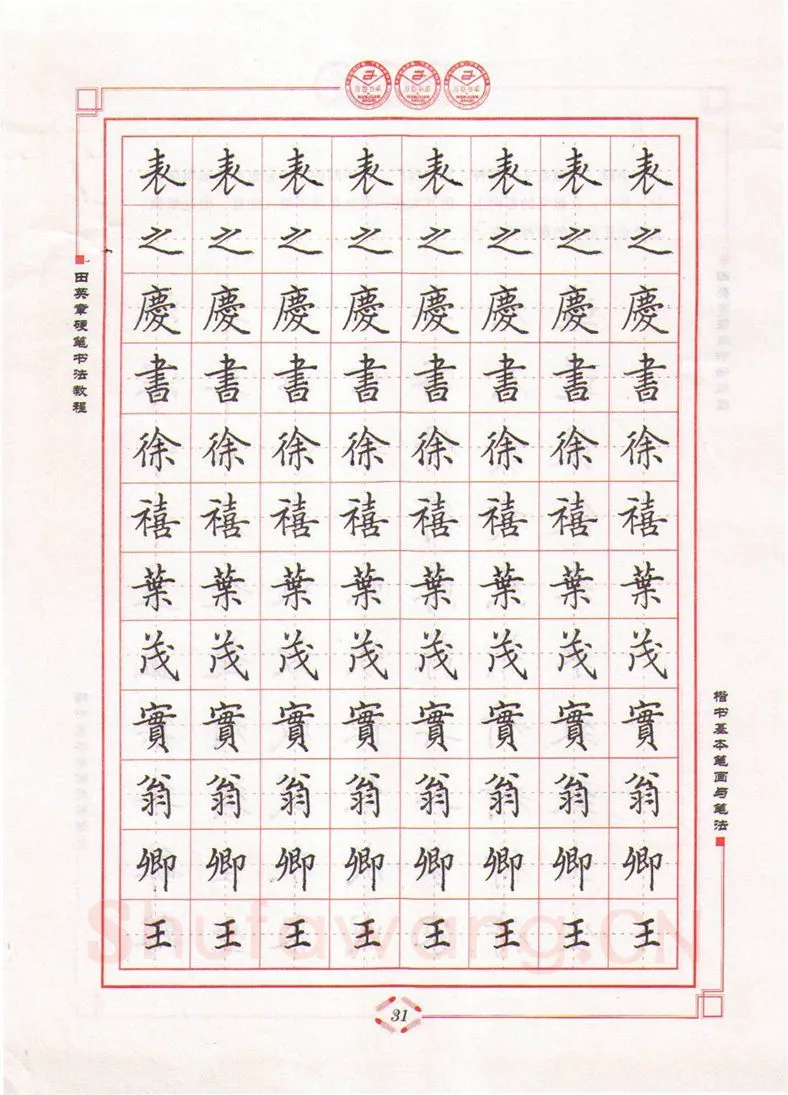 万卷书系 万卷书系 万卷书系
田英章硬笔书法教程
表表表表表表表表
之之之之之之之之
慶慶慶慶慶慶慶慶
書書書書書書書書
徐徐徐徐徐徐徐徐
禧禧禧禧禧禧禧禧
葉葉葉葉葉葉葉葉
茂茂茂茂茂茂茂茂
實實實實實實實實
翁翁翁翁翁翁翁翁
卿卿卿卿卿卿卿卿
王王王王王王王王
楷书基本笔画与笔法
Shufawang.CN
31